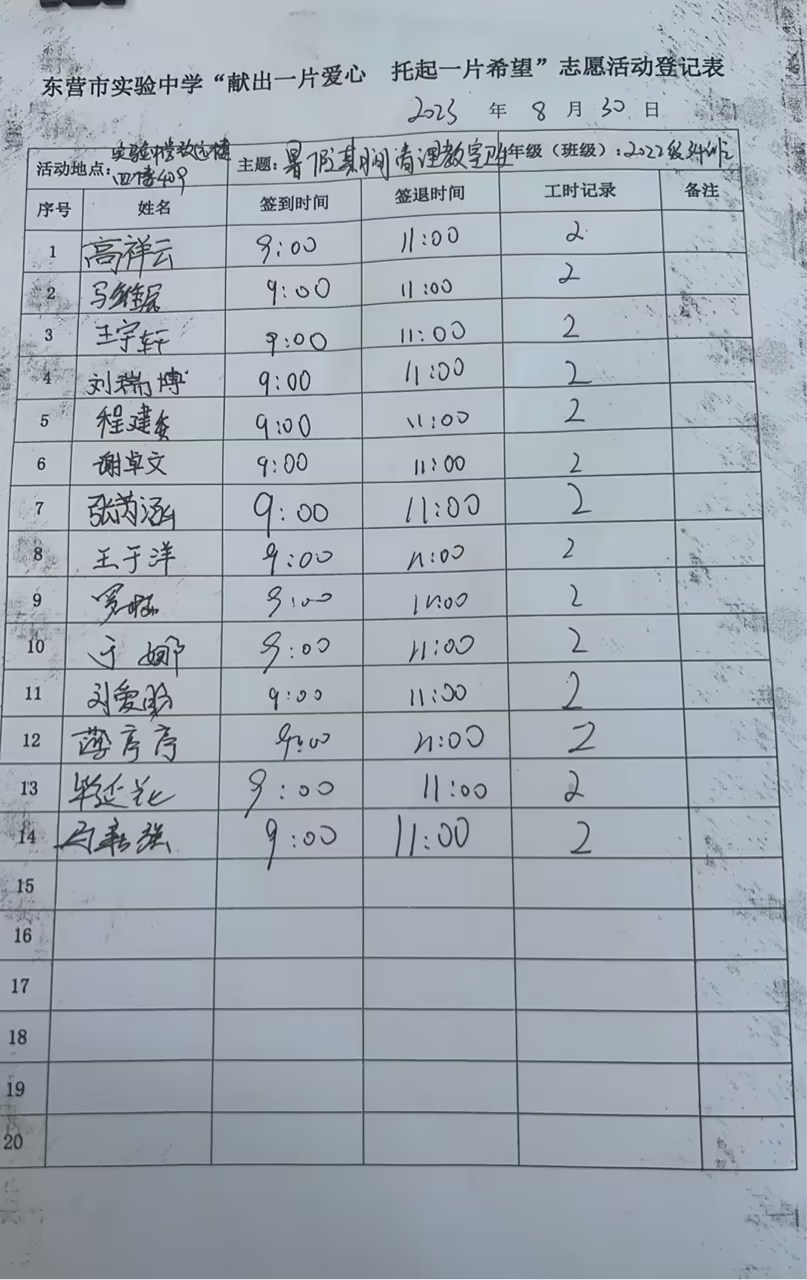 东营市实验中学“献出一片爱心 托起一片希望”志愿活动登记表
2023 年 8 月 30 日
活动地点：实验中学 四楼409 主题：暑假期间清理教室 年级（班级）：2022级
序号 姓名 签到时间 签退时间 工时记录 备注
1 高祥云 9:00 11:00 2
2 9:00 11:00 2
3 王宇轩 9:00 11:00 2
4 刘瑞博 9:00 11:00 2
5 程建 9:00 11:00 2
6 谢卓文 9:00 11:00 2
7 张芮涵 9:00 11:00 2
8 王于洋 9:00 11:00 2
9 9:00 11:00 2
10 于娜 9:00 11:00 2
11 刘爱 9:00 11:00 2
12 薄亭亭 9:00 11:00 2
13 9:00 11:00 2
14 9:00 11:00 2
15
16
17
18
19
20